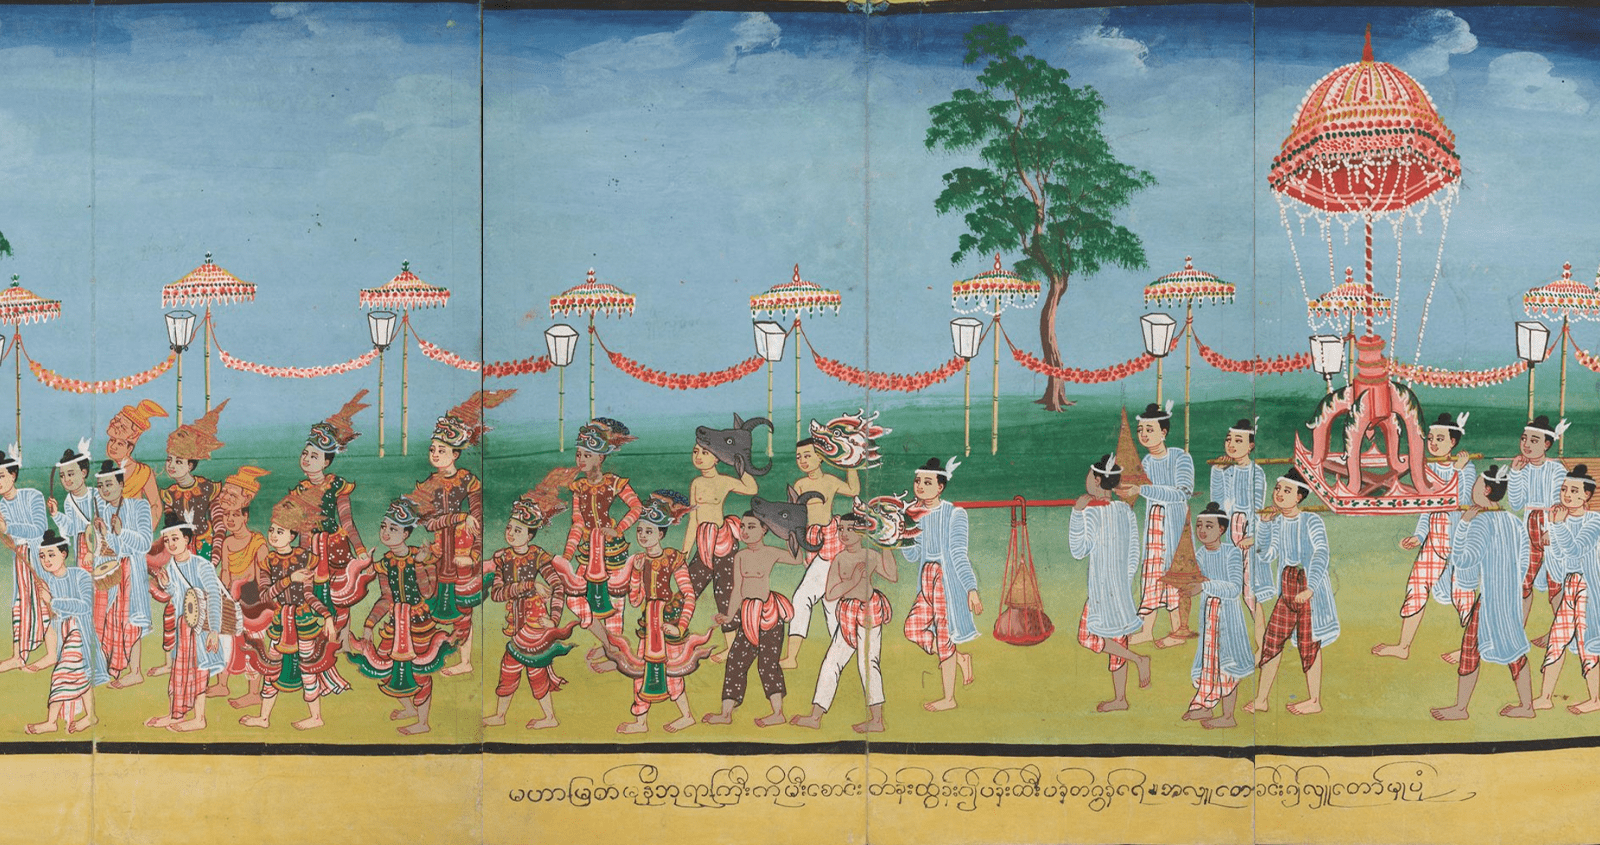 မဟာမြတ်မုနိဘုရားကြီးကိုမီးစောင်းတန်းထွန်း၍ပန်းထီးပန်တဂွန်၎၎အလှူတော်ခင်း၍လှူတော်မူပုံ